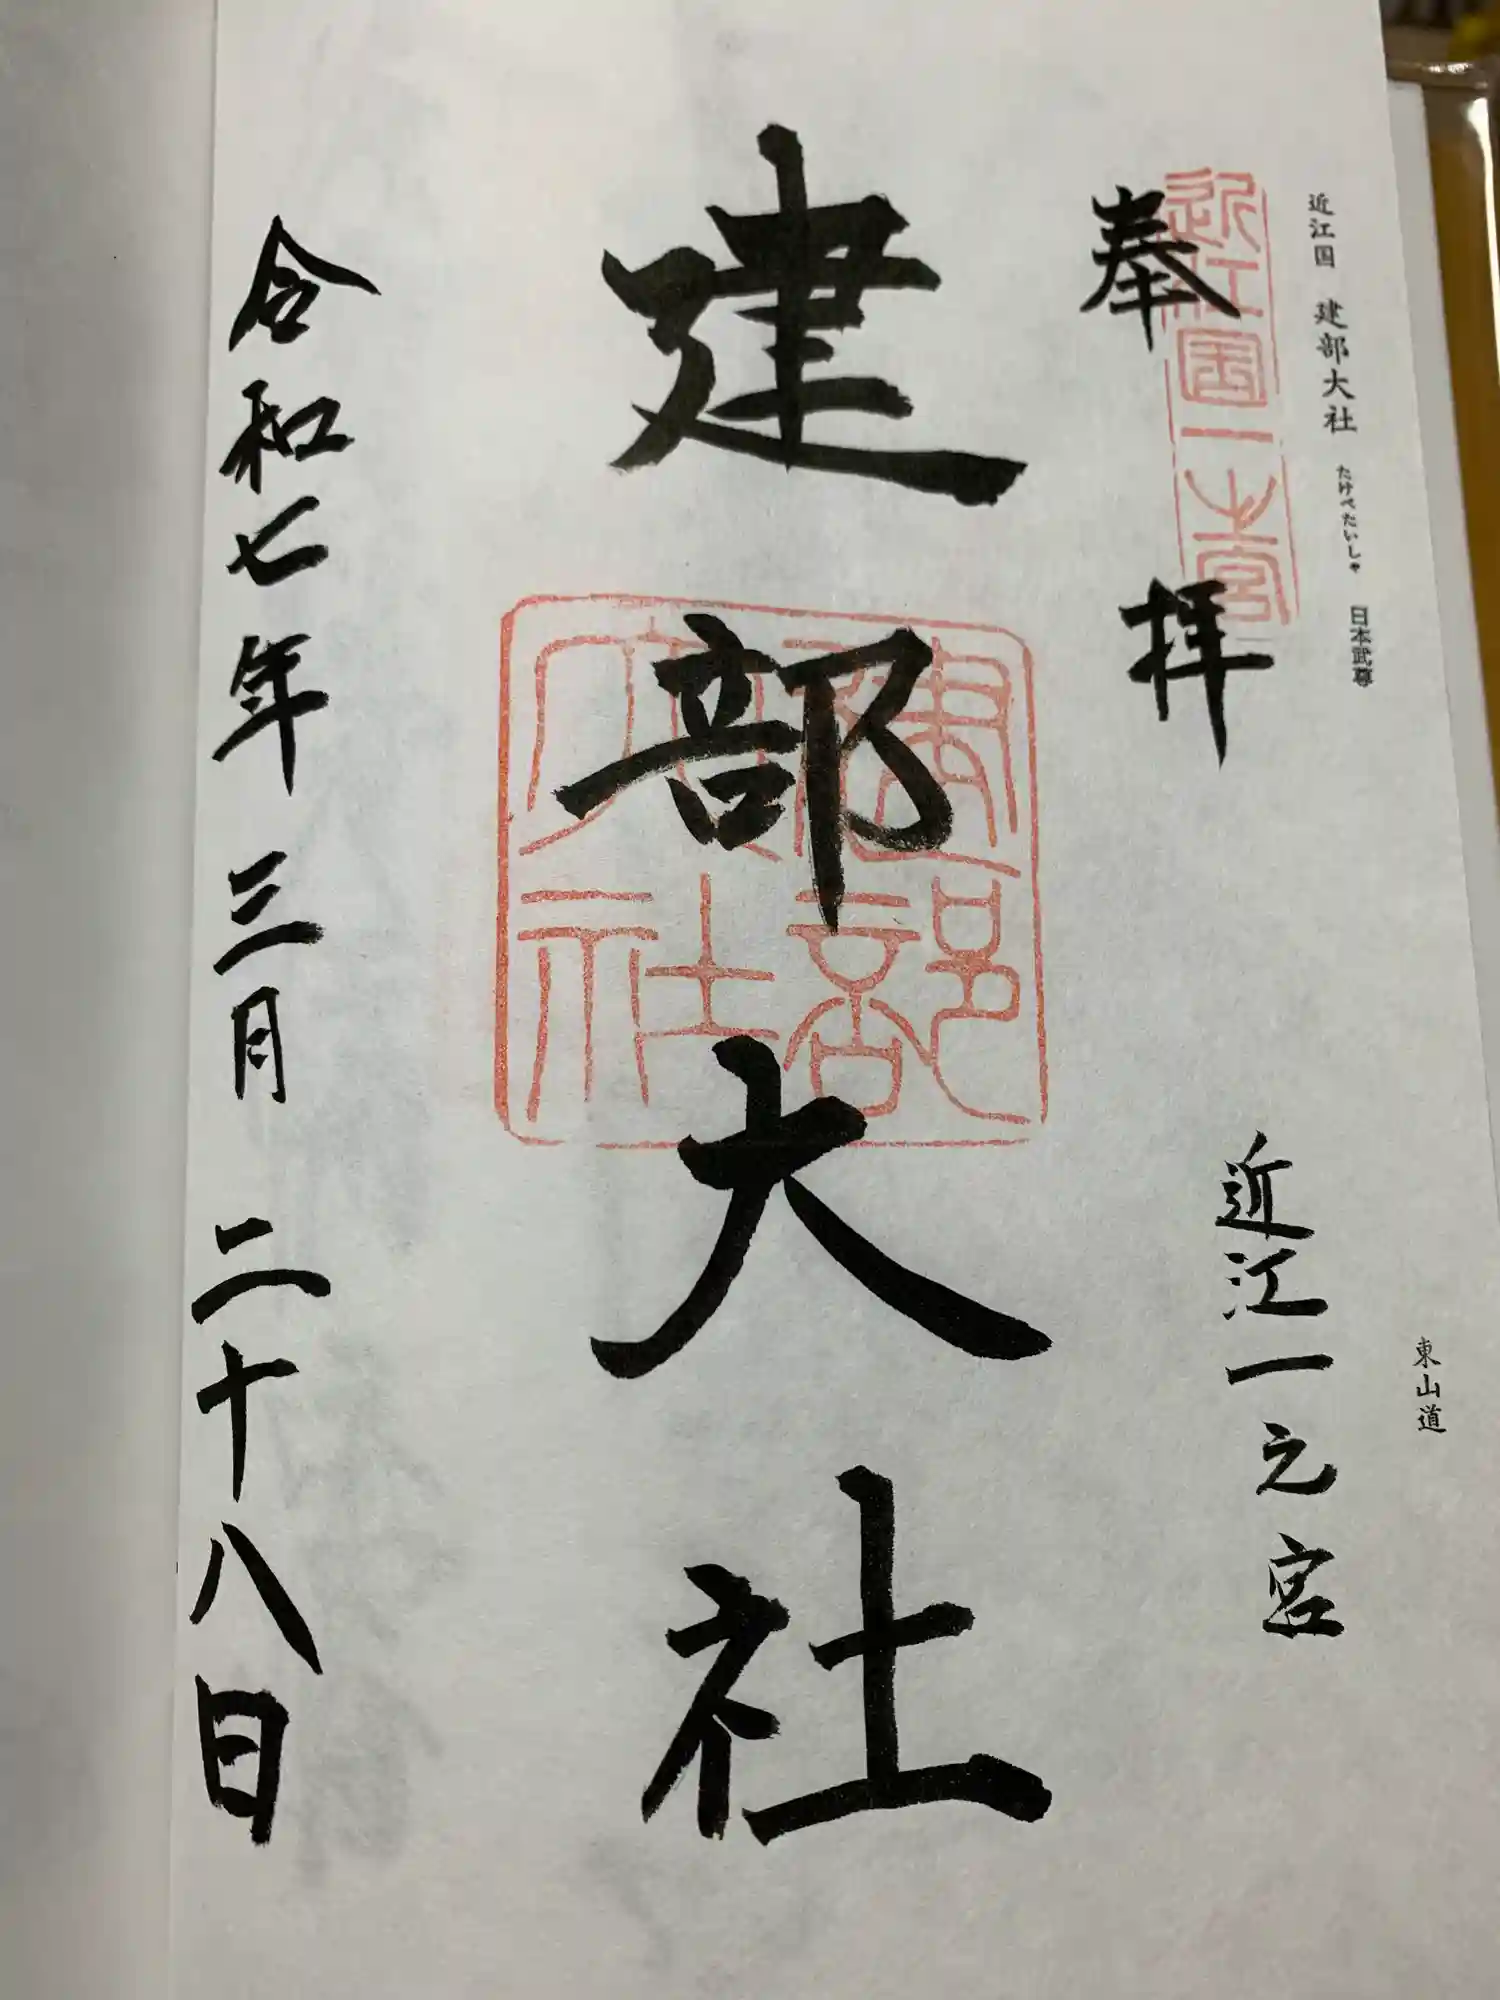 近江国 建部大社 たけべたいしゃ 日本武尊
東山道
近江国一之宮
奉拝
近江一之宮
建部大社
建部大社
令和七年三月二十八日